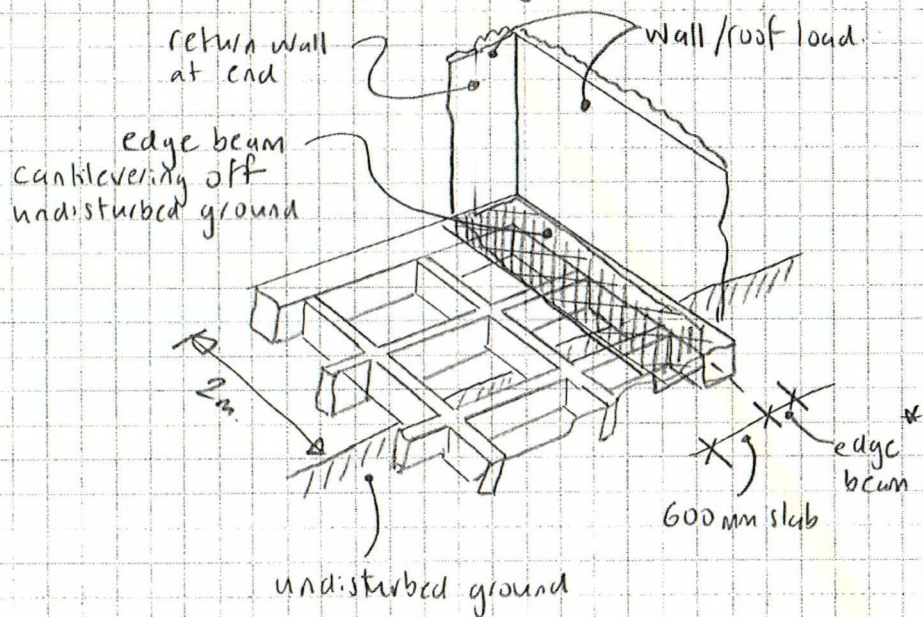 return wall
at end
wall/roof load.
edge beam
cantilevering off
undisturbed ground
2m
edge *
beam
600mm slab
undisturbed ground